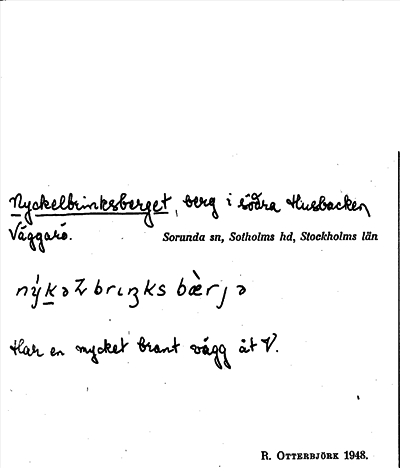 Nyckelbrinksberget, berg i södra Husbacken
Väggarö. Sorunda sn, Sotholms hd, Stockholms län
Har en mycket brant vägg åt V.
R. OTTERBJÖRK 1948.